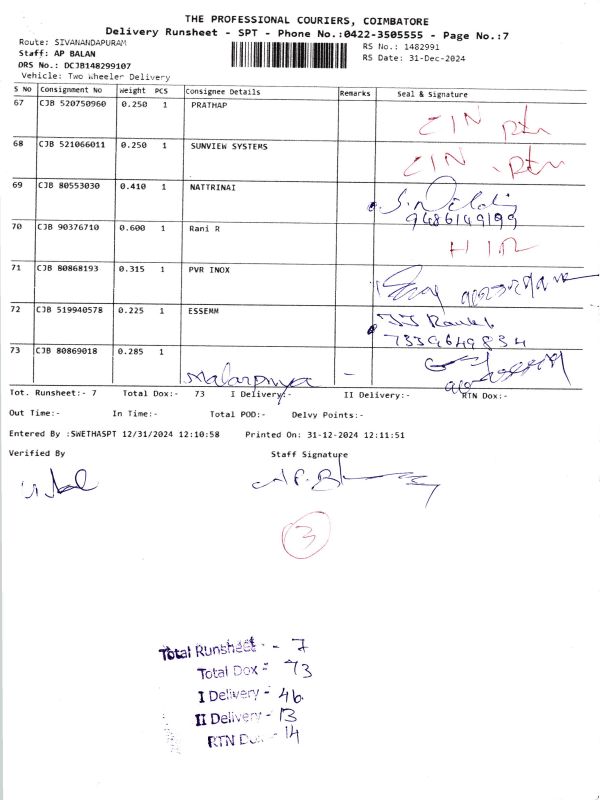 THE PROFESSIONAL COURIERS, COIMBATORE
Delivery Runsheet - SPT - Phone No.:0422-3505555 - Page No.:7
Route: SIVANANDAPURAM
RS No.: 1482991
Staff: AP BALAN
RS Date: 31-Dec-2024
DRS No.: DCJB148299107
Vehicle: Two Wheeler Delivery
S No Consignment No Weight PCS Consignee Details Remarks Seal & Signature
67 CJB 520750960 0.250 1 PRATHAP
CIN Rtn
68 CJB 521066011 0.250 1 SUNVIEW SYSTEMS
CIN Rtn
69 CJB 80553030 0.410 1 NATTRINAI
9486149199
70 CJB 90376710 0.600 1 Rani R
71 CJB 80868193 0.315 1 PVR INOX
72 CJB 519940578 0.225 1 ESSEMM
7339649834
73 CJB 80869018 0.285 1
Malarpriya -
Tot. Runsheet:- 7 Total Dox:- 73 I Delivery:- II Delivery:- RTN Dox:-
Out Time:- In Time:- Total POD:- Delvy Points:-
Entered By :SWETHASPT 12/31/2024 12:10:58 Printed On: 31-12-2024 12:11:51
Verified By Staff Signature
3
Total Runsheet - 7
Total Dox - 73
I Delivery - 46
II Delivery - 13
RTN Dox - 14